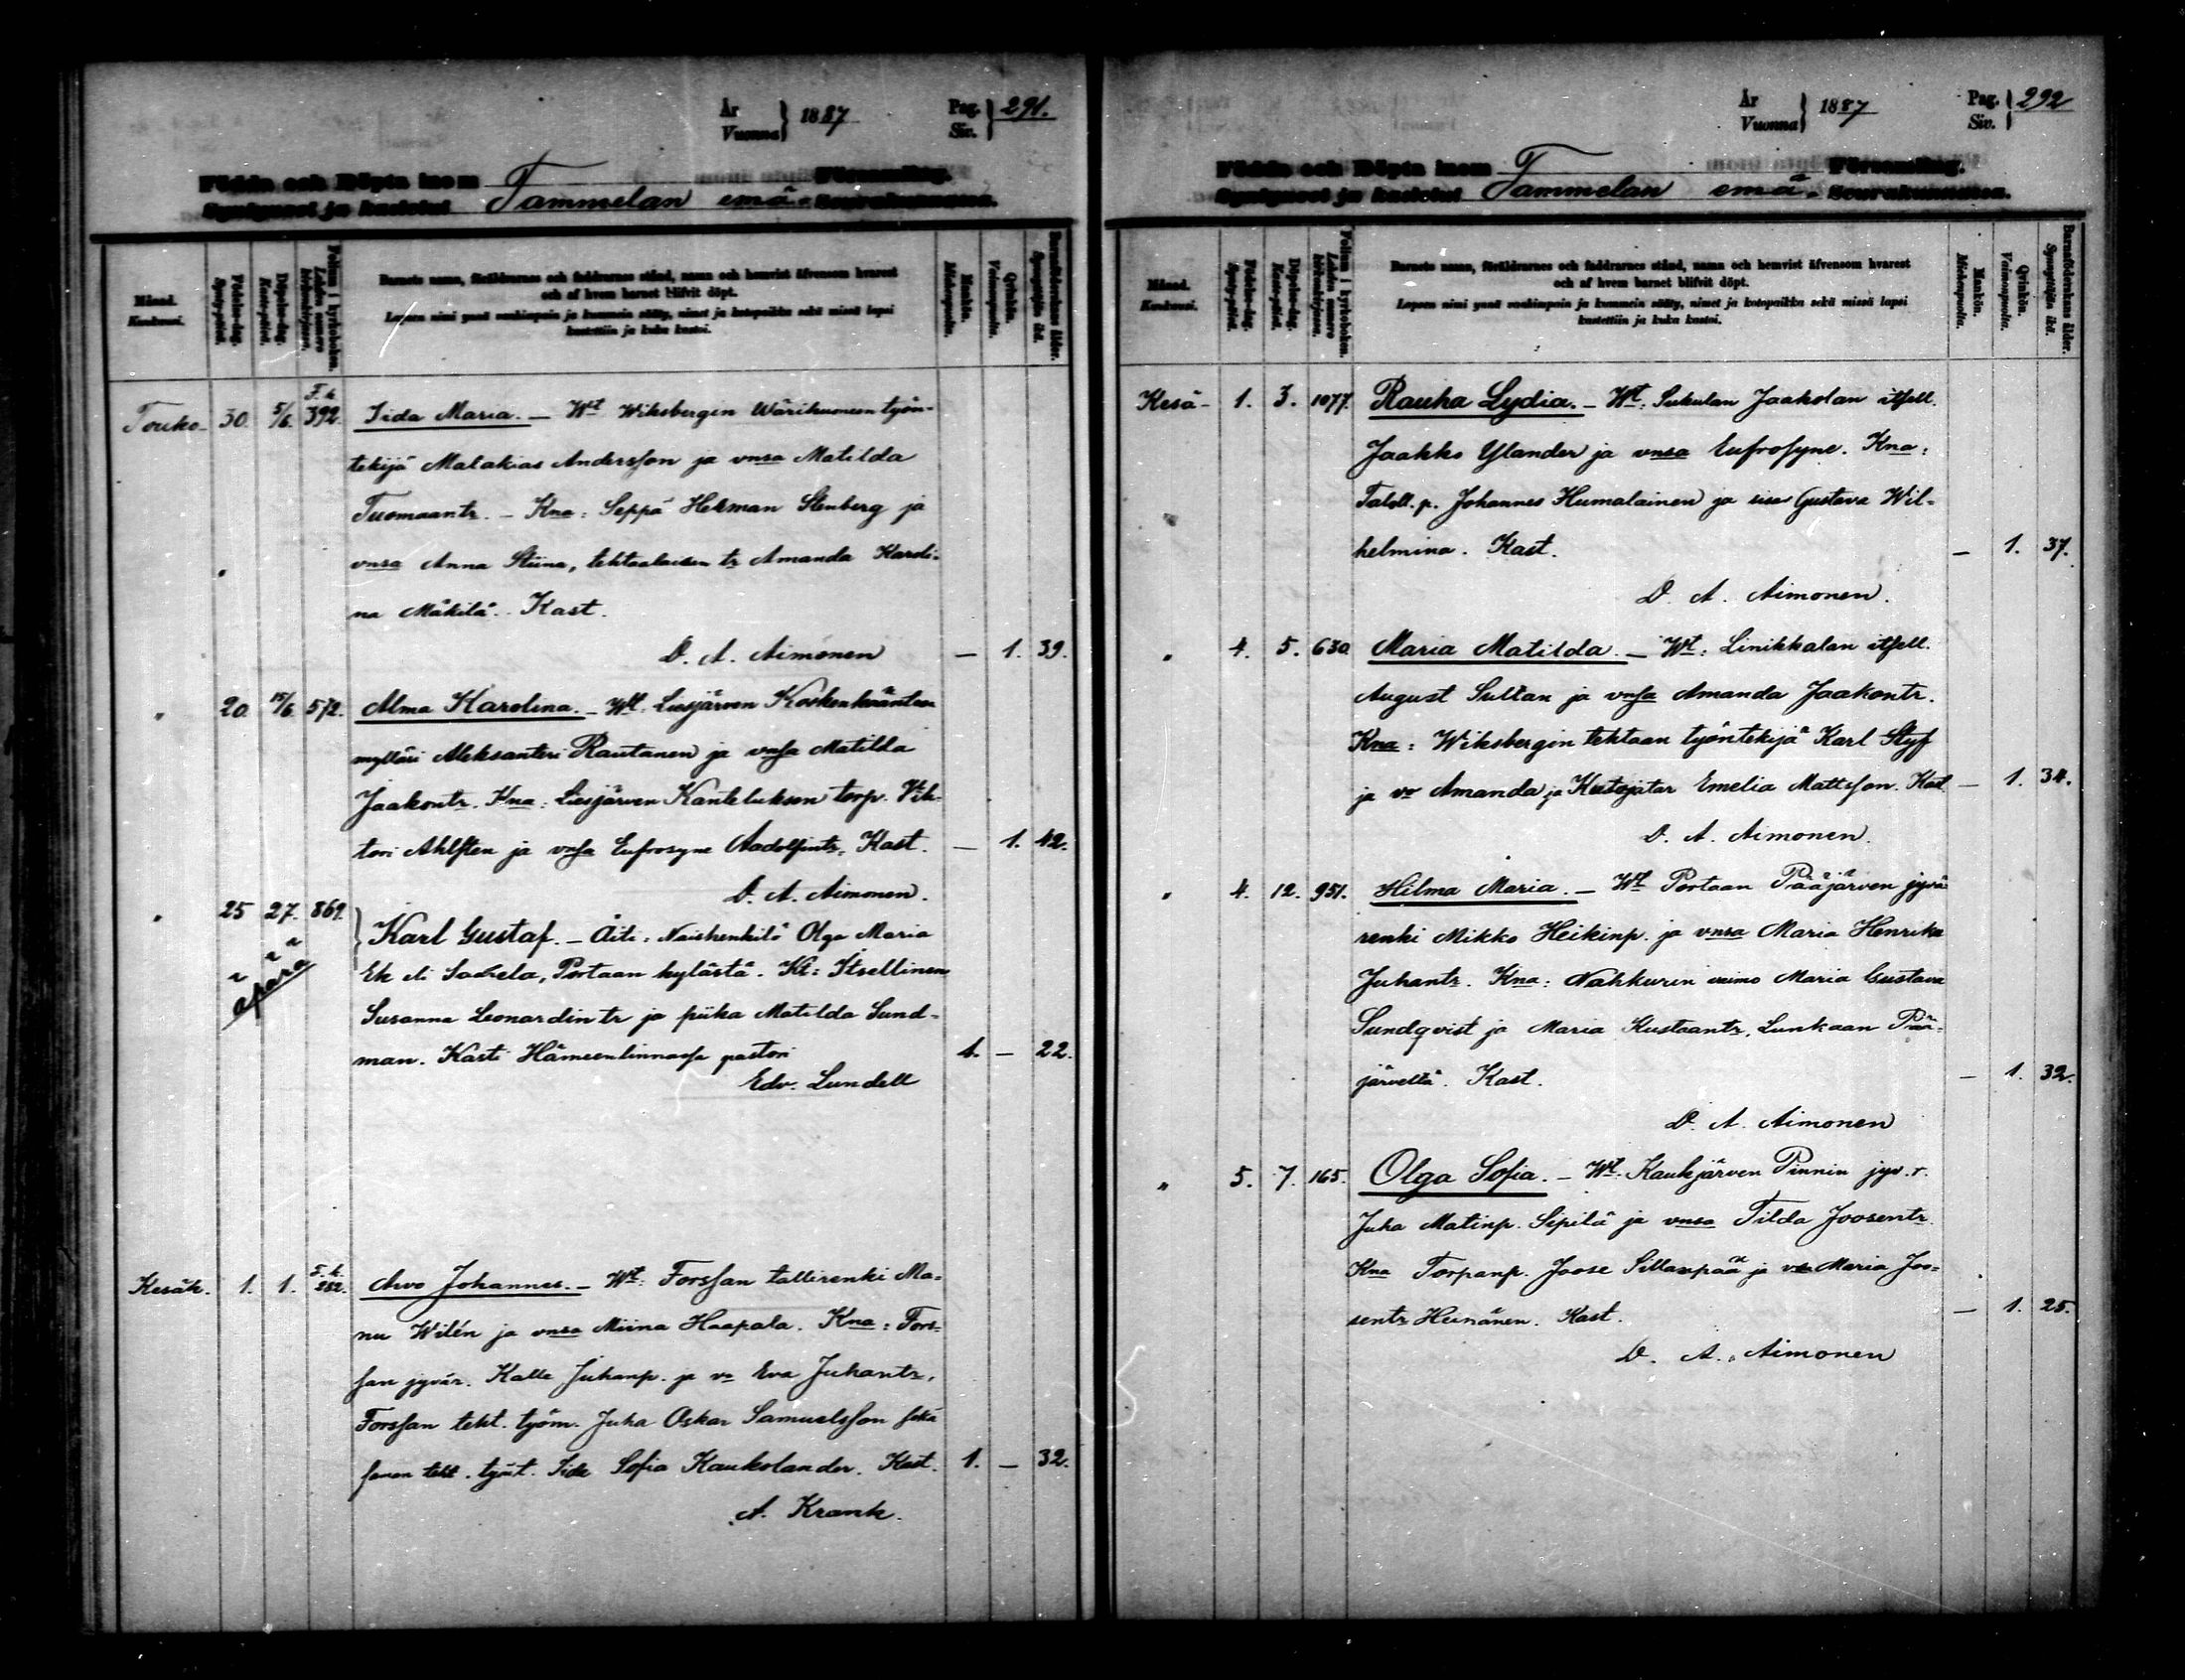 År
Vuonna } 1887
Pag.
Siv. } 291.
Födde och Döpta inom Församling.
Syntyneet ja kastetut Tammelan emä- Seurakunnassa.
Månad.
Kuukausi.
Födelse-dag.
Synty-päivä.
Döpelse-dag.
Kaste-päivä.
Folium i kyrkoboken.
Lehden numero kirkonkirjassa.
Barnets namn, föräldrarnes och faddrarnes stånd, namn och hemvist äfvensom hvarest
och af hvem barnet blifvit döpt.
Lapsen nimi ynnä vanhimpain ja kummein sääty, nimet ja kotopaikka sekä missä lapsi
kastettiin ja kuka kastoi.
Mankön.
Miehenpuolta.
Qvinkön.
Vaimonpuolta.
Barnaföderskans ålder.
Synnyttäjän ikä.
Touko- 30. 5/6. F. k. 392. Iida Maria. – Wt Wiksbergin Wärihuoneen työn-
tekijä Malakias Andersson ja vnsa Matilda
Tuomaantr. – Kna: Seppä Herman Stenberg ja
vnsa Anna Stiina, tehtaalaisen tr Amanda Karoli-
na Mäkilä. Kast.
D. A. Aimonen — 1. 39.
" 20. 15/6 572. Alma Karolina. – Wt. Liesjärven Koskenkääntän
mylläri Aleksanteri Rautanen ja vnsa Matilda
Jaakontr. Kna: Liesjärven Kanteluksen torp. Vik-
tori Ahlsten ja vnsa Eufrosyne Aadolfintr. Kast. — 1. 42.
D. A. Aimonen.
" 25 27. 869. Karl Gustaf. – Äiti: Naishenkilö Olga Maria
Ek eli Saxela, Portaan kylästä. Kt: Itsellinen
äpärä
Susanna Leonardintr ja piika Matilda Sund-
man. Kasti Hämeenlinnassa pastori 1. — 22.
Edv. Lundell
Kesäk. 1. 1. F. k. 282. Arvo Johannes. – Wt: Forssan tallirenki Ma-
nu Wilén ja vnsa Miina Haapala. Kna: Fors-
san jyvär. Kalle Juhanp. ja vo Eva Juhantr,
Forssan teht. työm. Juha Oskar Samuelsson sekä
saman teht. työt. Iida Sofia Kaukolander. Kast. 1. — 32.
A. Krank.
År
Vuonna } 1887
Pag.
Siv. } 292
Födde och Döpta inom Församling.
Syntyneet ja kastetut Tammelan emä- Seurakunnassa.
Månad.
Kuukausi.
Födelse-dag.
Synty-päivä.
Döpelse-dag.
Kaste-päivä.
Folium i kyrkoboken.
Lehden numero kirkonkirjassa.
Barnets namn, föräldrarnes och faddrarnes stånd, namn och hemvist äfvensom hvarest
och af hvem barnet blifvit döpt.
Lapsen nimi ynnä vanhimpain ja kummein sääty, nimet ja kotopaikka sekä missä lapsi
kastettiin ja kuka kastoi.
Mankön.
Miehenpuolta.
Qvinkön.
Vaimonpuolta.
Barnaföderskans ålder.
Synnyttäjän ikä.
Kesä- 1. 3. 1077. Rauha Lydia. – Wt: Sukulan Jaakolan itsell.
Jaakko Ylander ja vnsa Eufrosyne. Kna:
Taloll. p. Johannes Humalainen ja sisar Gustava Wil-
helmina. Kast. — 1. 37.
D. A. Aimonen.
" 4. 5. 630. Maria Matilda. – Wt: Linikkalan itsell.
August Sultan ja vnsa Amanda Jaakontr.
Kna: Wiksbergin tehtaan työntekijä Karl Styf
ja vo Amanda ja Kutojatar Emelia Mattsson. Kast. — 1. 34.
D. A. Aimonen.
" 4. 12. 951. Hilma Maria. – Wt Portaan Pääjärven jyvä
renki Mikko Heikinp. ja vnsa Maria Henrika
Juhantr. Kna: Nahkurin vaimo Maria Gustava
Sundqvist ja Maria Kustaantr. Lunkaan Pää-
järveltä. Kast. — 1. 32.
D. A. Aimonen
" 5. 7. 165. Olga Sofia. – Wt. Kaukjärven Pinnin jyv. r.
Juha Matinp. Sipilä ja vnsa Tilda Joosentr.
Kna Torpanp. Joose Sillanpää ja vo Maria Joo-
sentr Heinänen. Kast. — 1. 25.
D. A. Aimonen